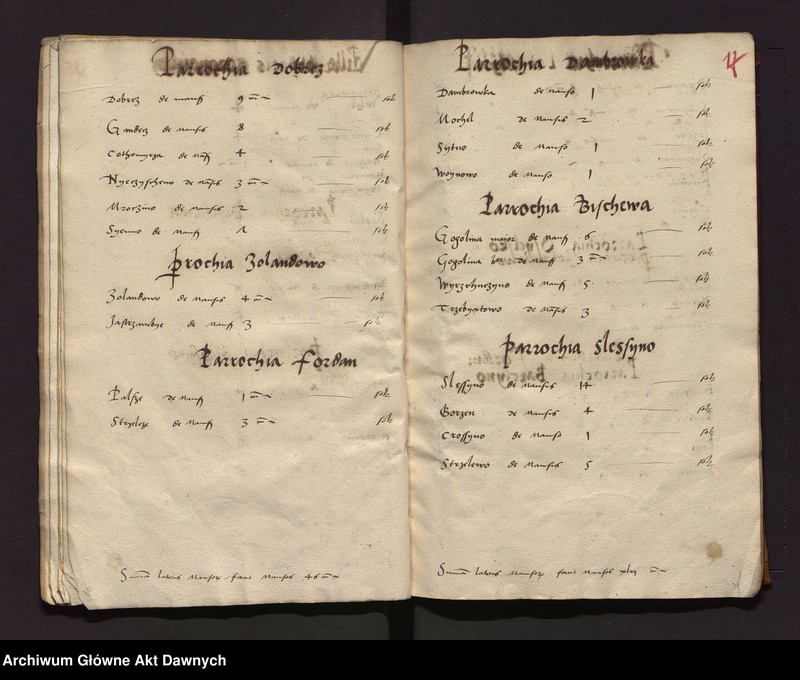 Parrochia Dobrcz
Dobrcz de mans 9 m solt
Gandecz de mansis 8 solt
Cothomyrza de mans 4 solt
Nyeczyschewo de mansis 3 m solt
Mroczino de mansis 2 solt
Syenno de mans 1 solt
prochia Zolandowo
Zolandowo de mansis 4 m solt
Jastrzambye de mans 3 solt
Parrochia Fordan
Palsze de mans 1 m solt
Strzelcze de mans 3 m solt
Summa lateris mansorum sunt mansis 46 m
Parrochia Dambrowka
17
Dambrowka de manso 1 solt
Mochel de mansis 2 solt
Sytno de manso 1 solt
Woynowo de manso 1 solt
Parrochia Bischewa
Gogolina maior de mans 6 solt
Gogolina de mans 3 m solt
Wyrzchuczyno de mans 5 solt
Trzebyatowo de mansis 3 solt
parrochia Slessyno
Slessyno de mansis 14 solt
Gorzen de mansis 4 solt
Crossyno de manso 1 solt
Strzelewo de mansis 5 solt
Summa lateris mansorum sunt mansis
Archiwum Główne Akt Dawnych